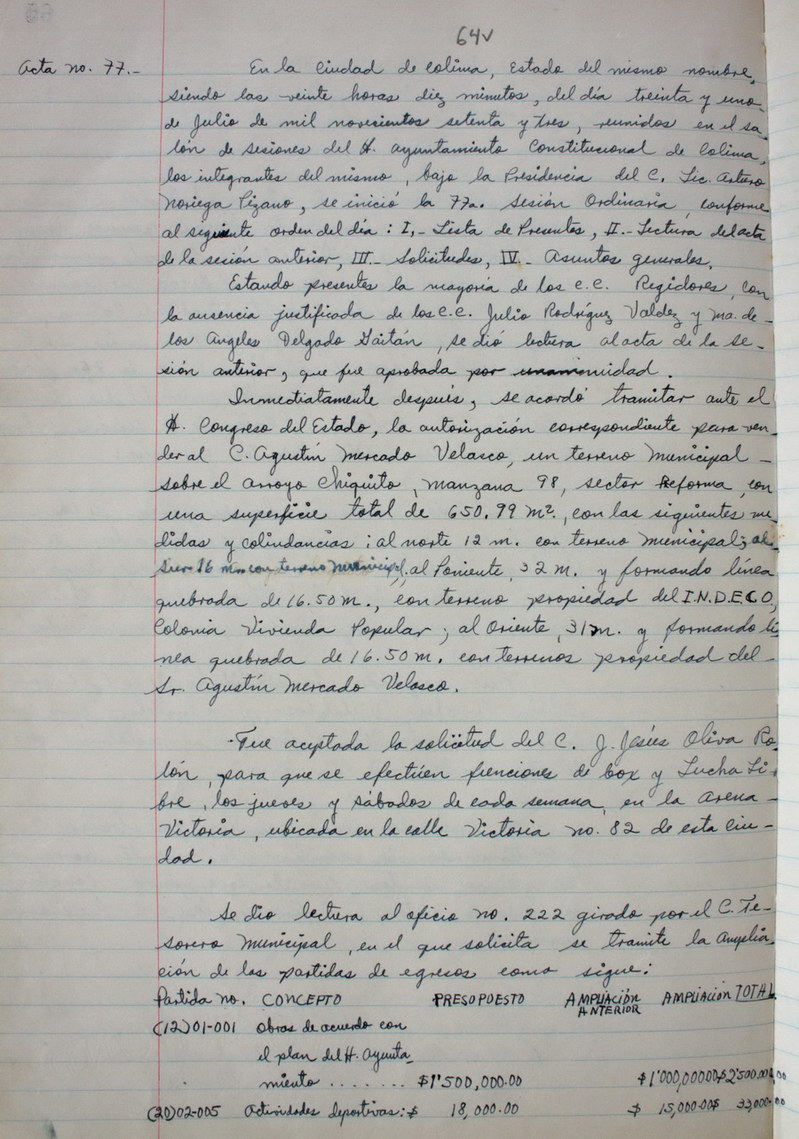 64v
Acta no. 77.- En la Ciudad de Colima, Estado del mismo nombre,
siendo las veinte horas diez minutos, del día treinta y uno
de Julio de mil novecientos setenta y tres, reunidos en el sa-
lón de sesiones del H. Ayuntamiento Constitucional de Colima,
los integrantes del mismo, bajo la Presidencia del C. Lic. Arturo
Noriega Pizano, se inició la 77a. Sesión Ordinaria, conforme
al siguiente orden del día: I,- Lista de Presentes, II.- Lectura del acta
de la sesión anterior, III.- Solicitudes, IV.- Asuntos generales.
Estando presentes la mayoría de los C.C. Regidores, con
la ausencia justificada de los C.C. Julio Rodríguez Valdez y Ma. de
los Angeles Delgado Gaitán, se dió lectura al acta de la se-
sión anterior, que fue aprobada por unanimidad.
Inmediatamente después, se acordó tramitar ante el
H. Congreso del Estado, la autorización correspondiente para ven-
der al C. Agustín Mercado Velasco, un terreno Municipal
sobre el arroyo Chiquito, Manzana 98, sector Reforma, con
una superficie total de 650.99 M2., con las siguientes me-
didas y colindancias; al norte 12 m. con terreno Municipal; al
Sur 16 m. con terreno Municipal; al Poniente, 32 m. y formando línea
quebrada de 16.50 m., con terreno propiedad del I.N.D.E.C.O,
Colonia Vivienda Popular; al Oriente, 31 m. y formando lí-
nea quebrada de 16.50 m. con terrenos propiedad del
Sr. Agustín Mercado Velasco.
Fue aceptada la solicitud del C. J. Jesús Oliva Ro-
lón, para que se efectúen funciones de box y Lucha Li-
bre, los jueves y sábados de cada semana, en la Arena
Victoria, ubicada en la calle Victoria no. 82 de esta Ciu-
dad.
Se dio lectura al oficio no. 222 girado por el C. Te-
sorero Municipal, en el que solicita se tramite la Amplia-
ción de las partidas de egresos como sigue:
Partida No. CONCEPTO PRESOPUESTO AMPLIACIÓN ANTERIOR AMPLIACIÓN TOTAL
(12)01-001 Obras de acuerdo con
el plan del H. Ayunta
miento ....... $1'500,000.00 $1'000,000.00 $2'500.000.00
(20)02-005 Actividades deportivas: $ 18,000.00 $ 15,000.00 $ 33,000.00